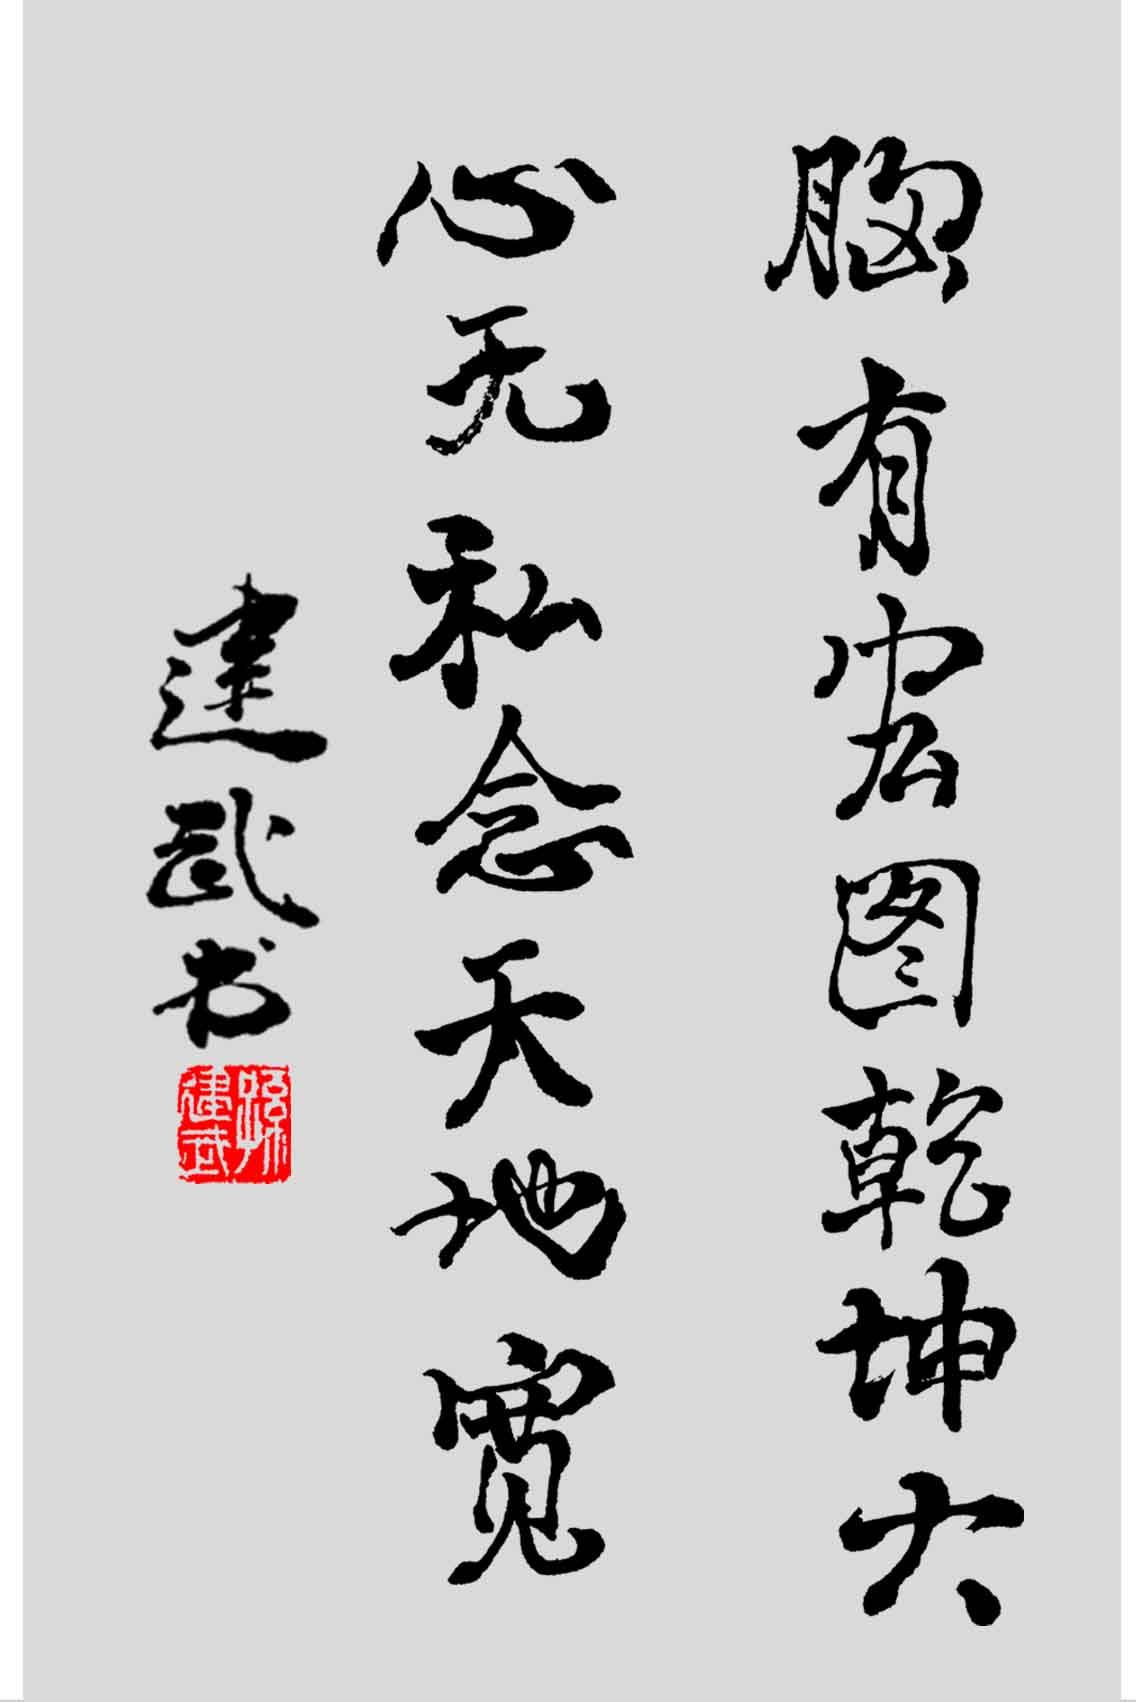 胸有宏图乾坤大
心无私念天地宽
建武书
孙建武